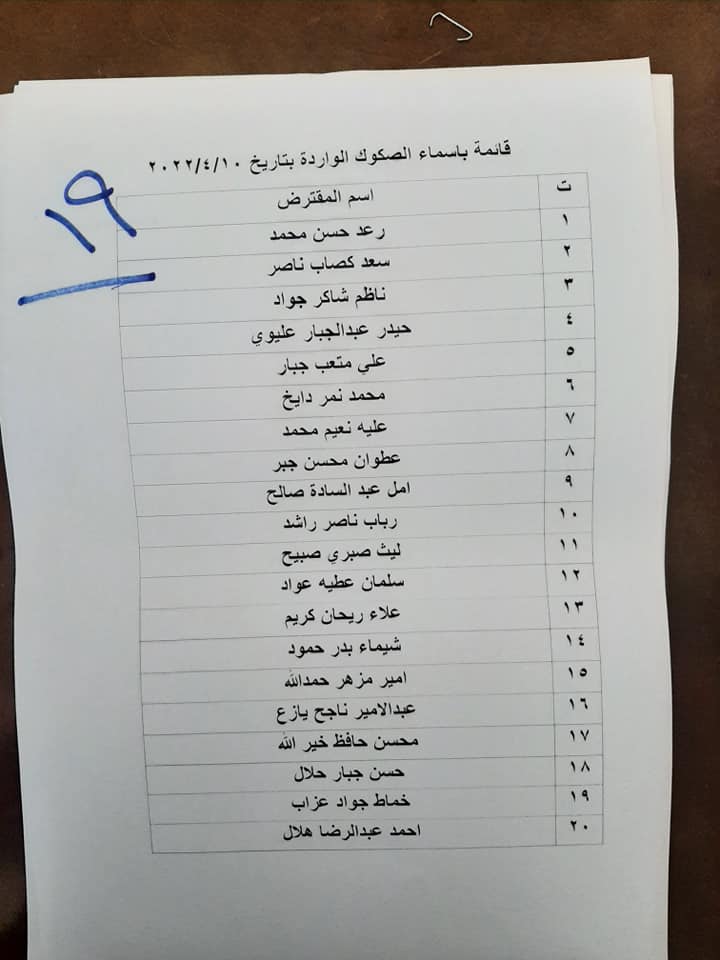 قائمة باسماء الصكوك الواردة بتاريخ ٢٠٢٢/٤/١٠
١٩
ت اسم المقترض
١ رعد حسن محمد
٢ سعد كصاب ناصر
٣ ناظم شاكر جواد
٤ حيدر عبدالجبار عليوي
٥ علي متعب جبار
٦ محمد نمر دايخ
٧ عليه نعيم محمد
٨ عطوان محسن جبر
٩ امل عبد السادة صالح
١٠ رباب ناصر راشد
١١ ليث صبري صبيح
١٢ سلمان عطيه عواد
١٣ علاء ريحان كريم
١٤ شيماء بدر حمود
١٥ امير مزهر حمدالله
١٦ عبدالامير ناجح يازع
١٧ محسن حافظ خير الله
١٨ حسن جبار حلال
١٩ خماط جواد عزاب
٢٠ احمد عبدالرضا هلال